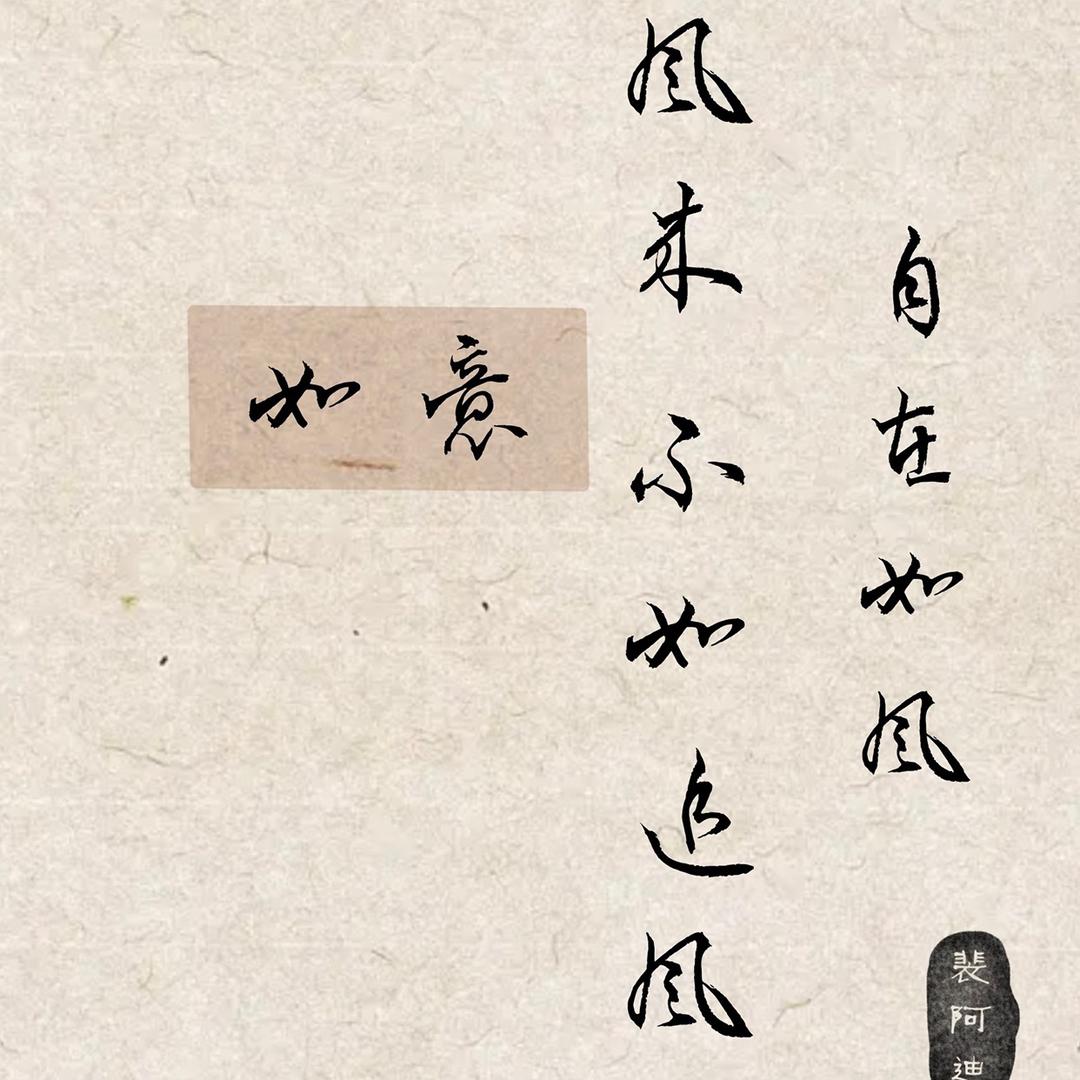 自在如風
風来不如追風
如意
裴阿迪